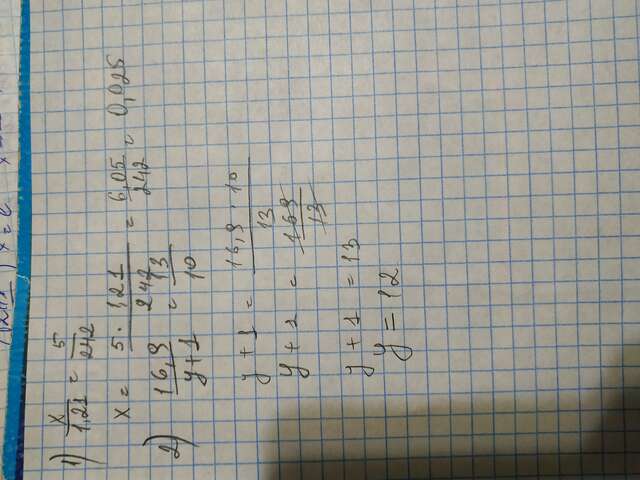 1) x/1,21 = 5/242
x = 5 · 1,21/242 = 6,05/242 = 0,025
2) 16,9/y+1 = 13/10
y + 1 = 16,9 · 10/13
y + 1 = 169/13
y + 1 = 13
y = 12